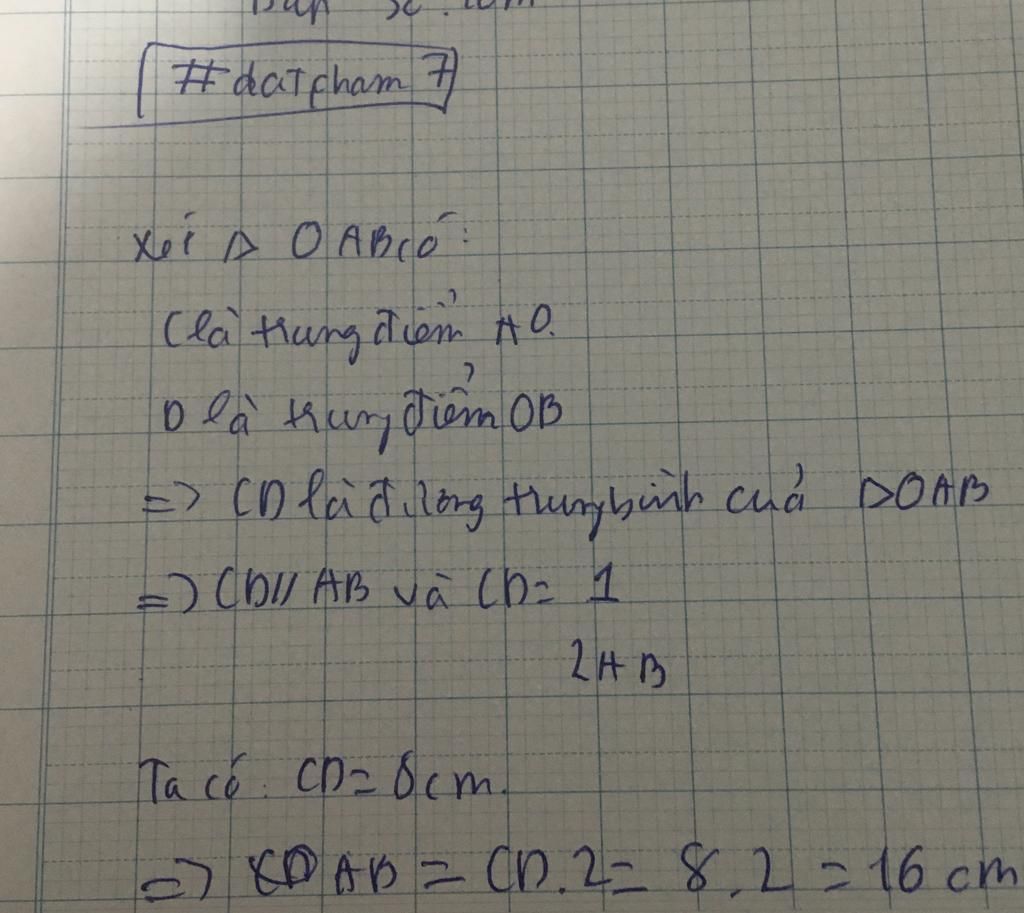 #datpham7
Xét Δ OAB có:
C là trung điểm AO.
D là trung điểm OB
=> CD là đường trung bình của ΔOAB
=> CD// AB và CD= 1
2AB
Ta có: CD= 8cm.
=> AB = CD.2= 8.2 = 16 cm